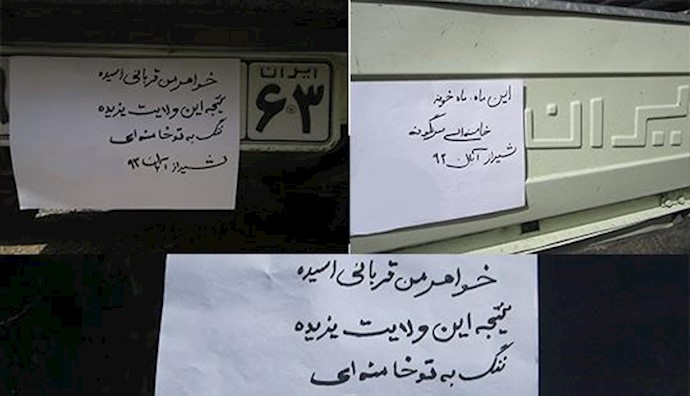 خواهر من قربانی اسیده
نتیجه این ولایت یزیده
ننگ به تو خامنه ای
شیراز آبان ۹۳
ایران
۶۳
این ماه، ماه خونه
خامنه ای سرنگونه
شیراز آبان ۹۳
ایران
خواهر من قربانی اسیده
نتیجه این ولایت یزیده
ننگ به تو خامنه ای